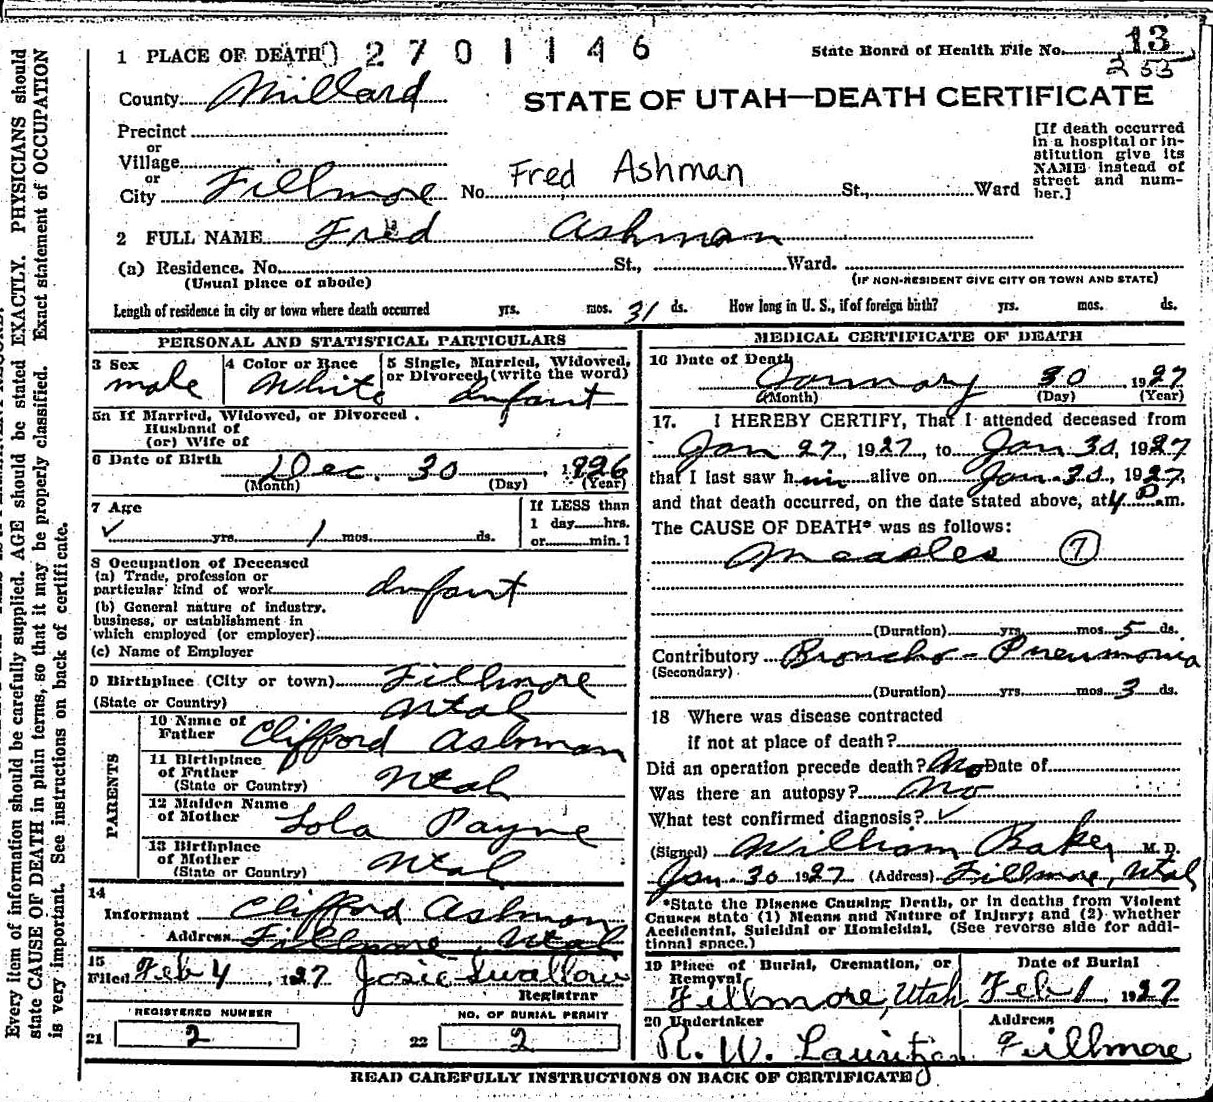 1 PLACE OF DEATH 2701146
State Board of Health File No. 13
255
County Millard
STATE OF UTAH—DEATH CERTIFICATE
Precinct
or
Village
or
City Fillmore No. Fred Ashman St., Ward
[If death occurred in a hospital or institution give its NAME instead of street and number.]
2 FULL NAME Fred Ashman
(a) Residence. No. St., Ward.
(Usual place of abode) (IF NON-RESIDENT GIVE CITY OR TOWN AND STATE)
Length of residence in city or town where death occurred yrs. mos. 31 ds. How long in U. S., if of foreign birth? yrs. mos. ds.
PERSONAL AND STATISTICAL PARTICULARS
3 Sex male
4 Color or Race White
5 Single, Married, Widowed, or Divorced (write the word) Infant
5a If Married, Widowed, or Divorced
Husband of
(or) Wife of
6 Date of Birth Dec. 30, 1926
(Month) (Day) (Year)
7 Age
✓ yrs. 1 mos. ds.
If LESS than
1 day hrs.
or min.
8 Occupation of Deceased
(a) Trade, profession or
particular kind of work Infant
(b) General nature of industry,
business, or establishment in
which employed (or employer)
(c) Name of Employer
9 Birthplace (City or town) Fillmore
(State or Country) Utah
PARENTS
10 Name of Father Clifford Ashman
11 Birthplace of Father (State or Country) Utah
12 Maiden Name of Mother Lola Payne
13 Birthplace of Mother (State or Country) Utah
14
Informant Clifford Ashman
Address Fillmore, Utah
15
Filed Feb 4 1927 Josie Swallow
Registrar
REGISTERED NUMBER
21 2
NO. OF BURIAL PERMIT
22 2
MEDICAL CERTIFICATE OF DEATH
16 Date of Death
January 30 1927
(Month) (Day) (Year)
17. I HEREBY CERTIFY, That I attended deceased from
Jan 27, 1927, to Jan 30, 1927
that I last saw him alive on Jan. 30, 1927,
and that death occurred, on the date stated above, at 4 P.m.
The CAUSE OF DEATH* was as follows:
Measles 7
(Duration) yrs. mos. 5 ds.
Contributory Broncho-Pneumonia
(Secondary)
(Duration) yrs. mos. 3 ds.
18 Where was disease contracted
if not at place of death?
Did an operation precede death? No Date of
Was there an autopsy? No
What test confirmed diagnosis? ✓
(Signed) William Baker M. D.
Jan. 30 1927 (Address) Fillmore, Utah
*State the Disease Causing Death, or in deaths from Violent
Causes state (1) Means and Nature of Injury; and (2) whether
Accidental, Suicidal or Homicidal. (See reverse side for addi-
tional space.)
19 Place of Burial, Cremation, or Removal
Fillmore, Utah
Date of Burial
Feb 1, 1927
20 Undertaker
R. W.
Address
Fillmore
READ CAREFULLY INSTRUCTIONS ON BACK OF CERTIFICATE
Every item of information should be carefully supplied. AGE should be stated EXACTLY. PHYSICIANS should
state CAUSE OF DEATH in plain terms, so that it may be properly classified. Exact statement of OCCUPATION
is very important. See instructions on back of certificate.